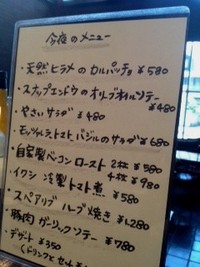 今夜のメニュー
・天然ヒラメのカルパッチョ ¥580
・スナップエンドウのオリーブオイルソテー
¥480
・やさいサラダ ¥480
・モッツァレラ、トマト、バジルのサラダ ¥680
・自家製ベーコンロースト 2枚 ¥580
4枚 ¥980
・イワシ 冷製トマト煮 ¥580
・スペアリブ ハーブ焼き ¥1,280
・豚肉 ガーリックソテー ¥780
・デザート ¥350
(ドリンクとセット